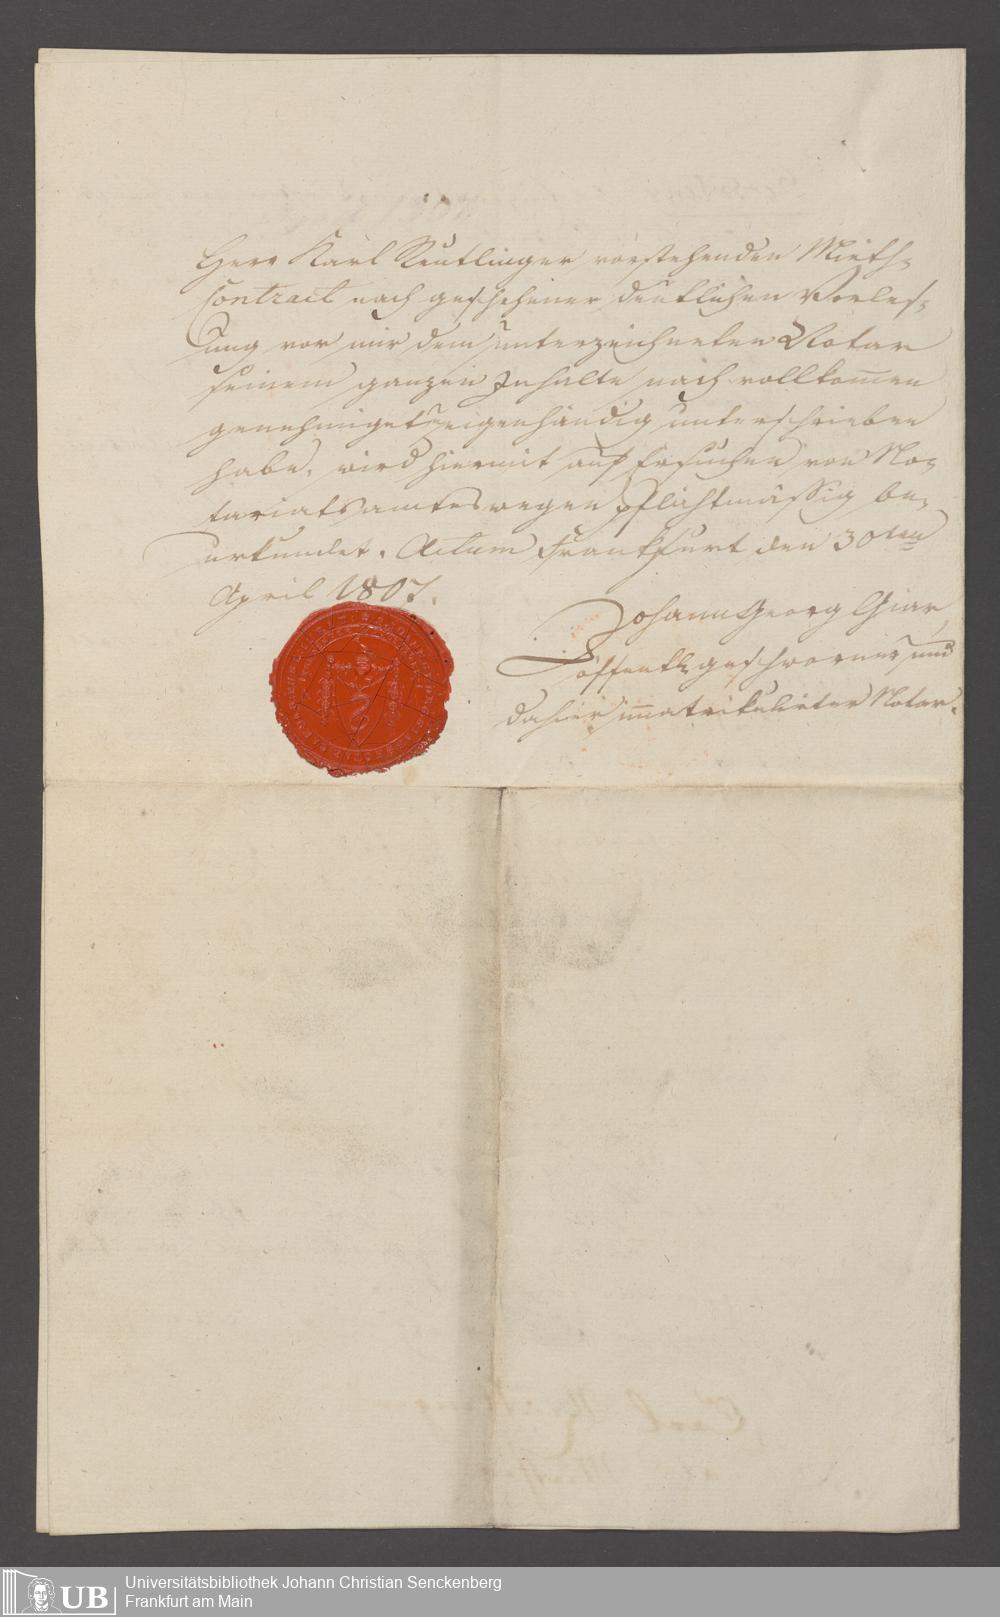 Herr Karl Reutlinger vorstehenden Mieth-
Contract nach geschehener deutlichen Vorles-
ung vor mir dem unterzeichneten Notar
seinem ganzen Inhalte nach vollkom̅en
genehmiget eigenhändig unterschrieben
habe, wird hiermit auf Ersuchen von No-
tariatsamtswegen pflichtmässig be-
urkundet. Actum Frankfurt den 30ten
April 1807.
Johann Georg Giar,
öffentl. geschworner, und
dahier im̅atrikulirter Notar.
UB
Universitätsbibliothek Johann Christian Senckenberg
Frankfurt am Main